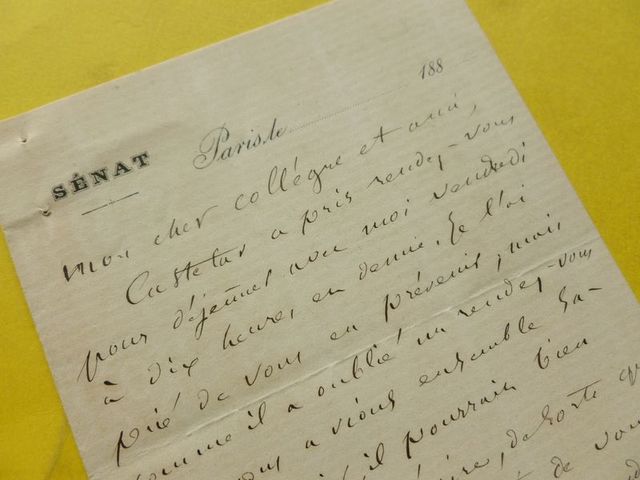 SÉNAT
Paris, le 188
Mon cher collégue et ami,
Castelar a pris rendez-vous
pour déjeuner avec moi vendredi
à dix heures en demie. Je l'ai
prié de vous en prévenir, mais
comme il a oublié un rendez-vous
avions ensemble sa-
il pourrait bien
de sorte q
de vou